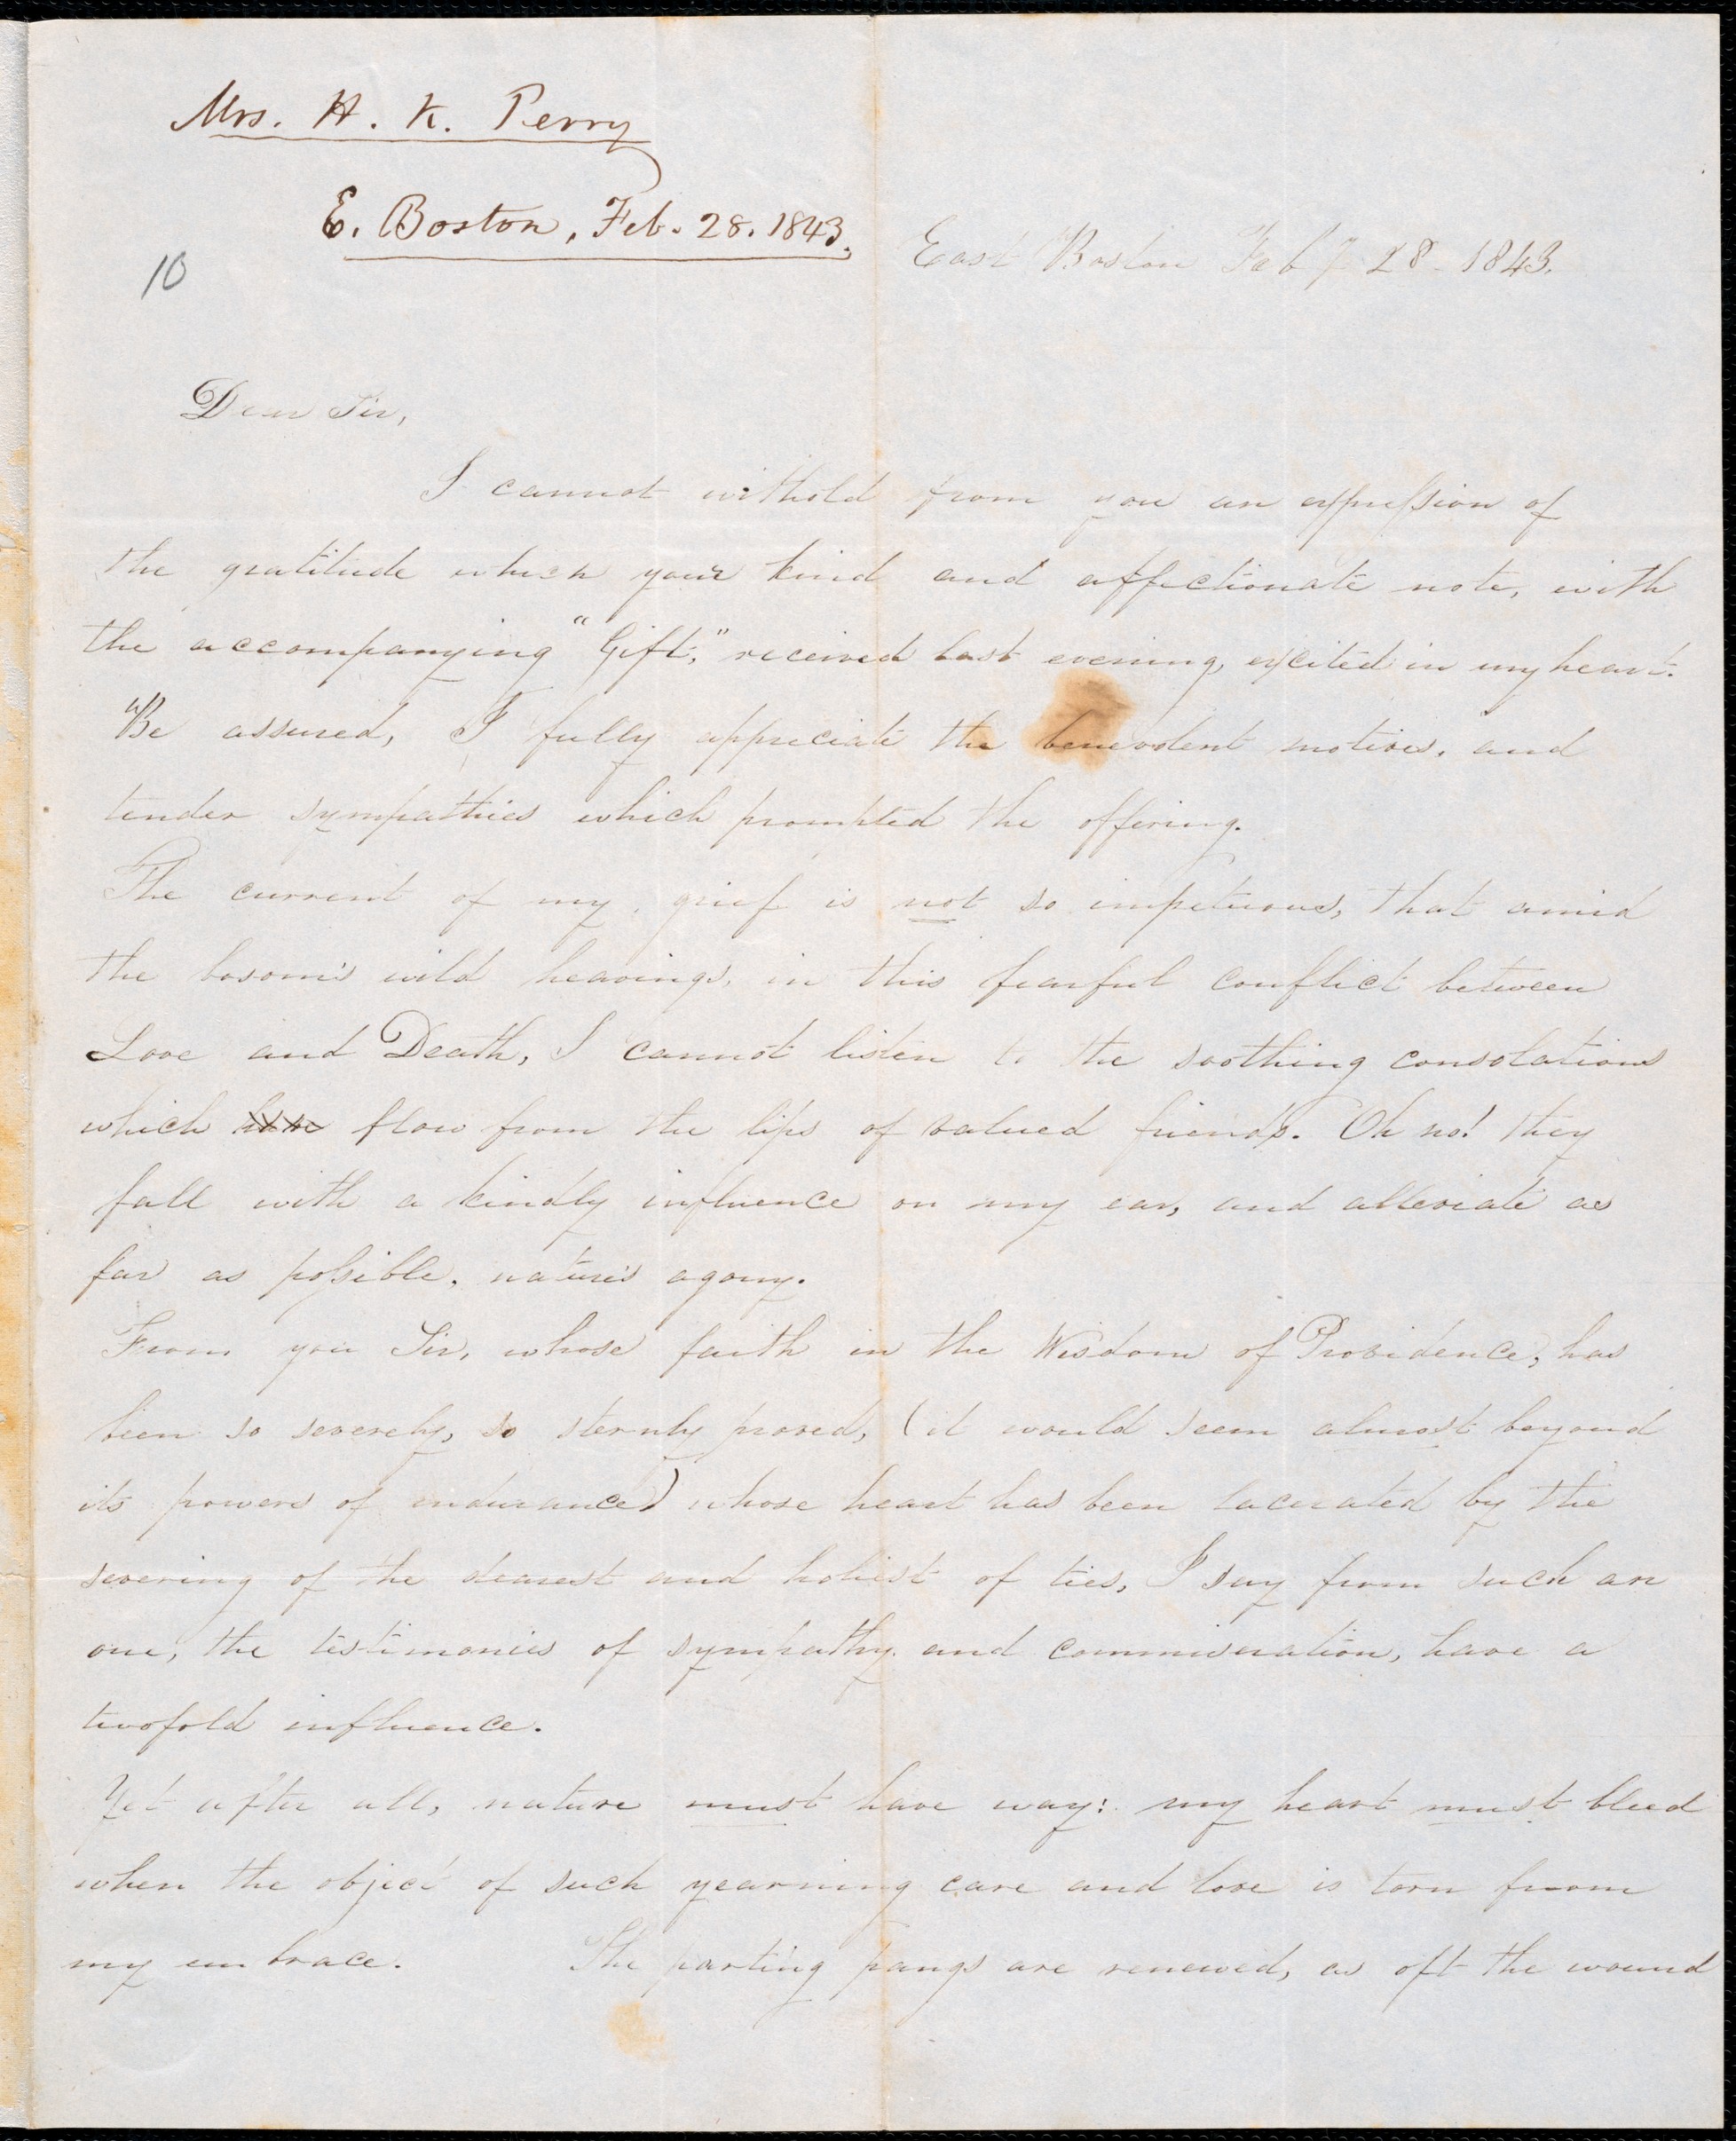 Mrs. H. K. Perry
E. Boston, Feb. 28. 1843.
10
East Boston Feby 28 - 1843.
Dear Sir,
I cannot withold from you an expression of
the gratitude which your kind and affectionate note, with
the accompanying "Gift," received last evening, excited in my heart.
Be assured, I fully appreciate the benevolent motives, and
tender sympathies which prompted the offering.
The current of my grief is not so impetuous, that amid
the bosom's wild heavings, in this fearful conflict between
Love and Death, I cannot listen to the soothing consolations
which flow from the lips of valued friends. Oh no! they
fall with a kindly influence on my ear, and alleviate as
far as possible, nature's agony.
From you Sir, whose faith in the Wisdom of Providence, has
been so severely, so sternly proved, (it would seem almost beyond
its powers of endurance) whose heart has been lacerated by the
severing of the dearest and holiest of ties, I say from such an
one, the testimonies of sympathy and commiseration, have a
twofold influence.
Yet after all, nature must have way: my heart must bleed
when the object of such yearning care and love is torn from
my embrace. The parting pangs are renewed, as oft the wound